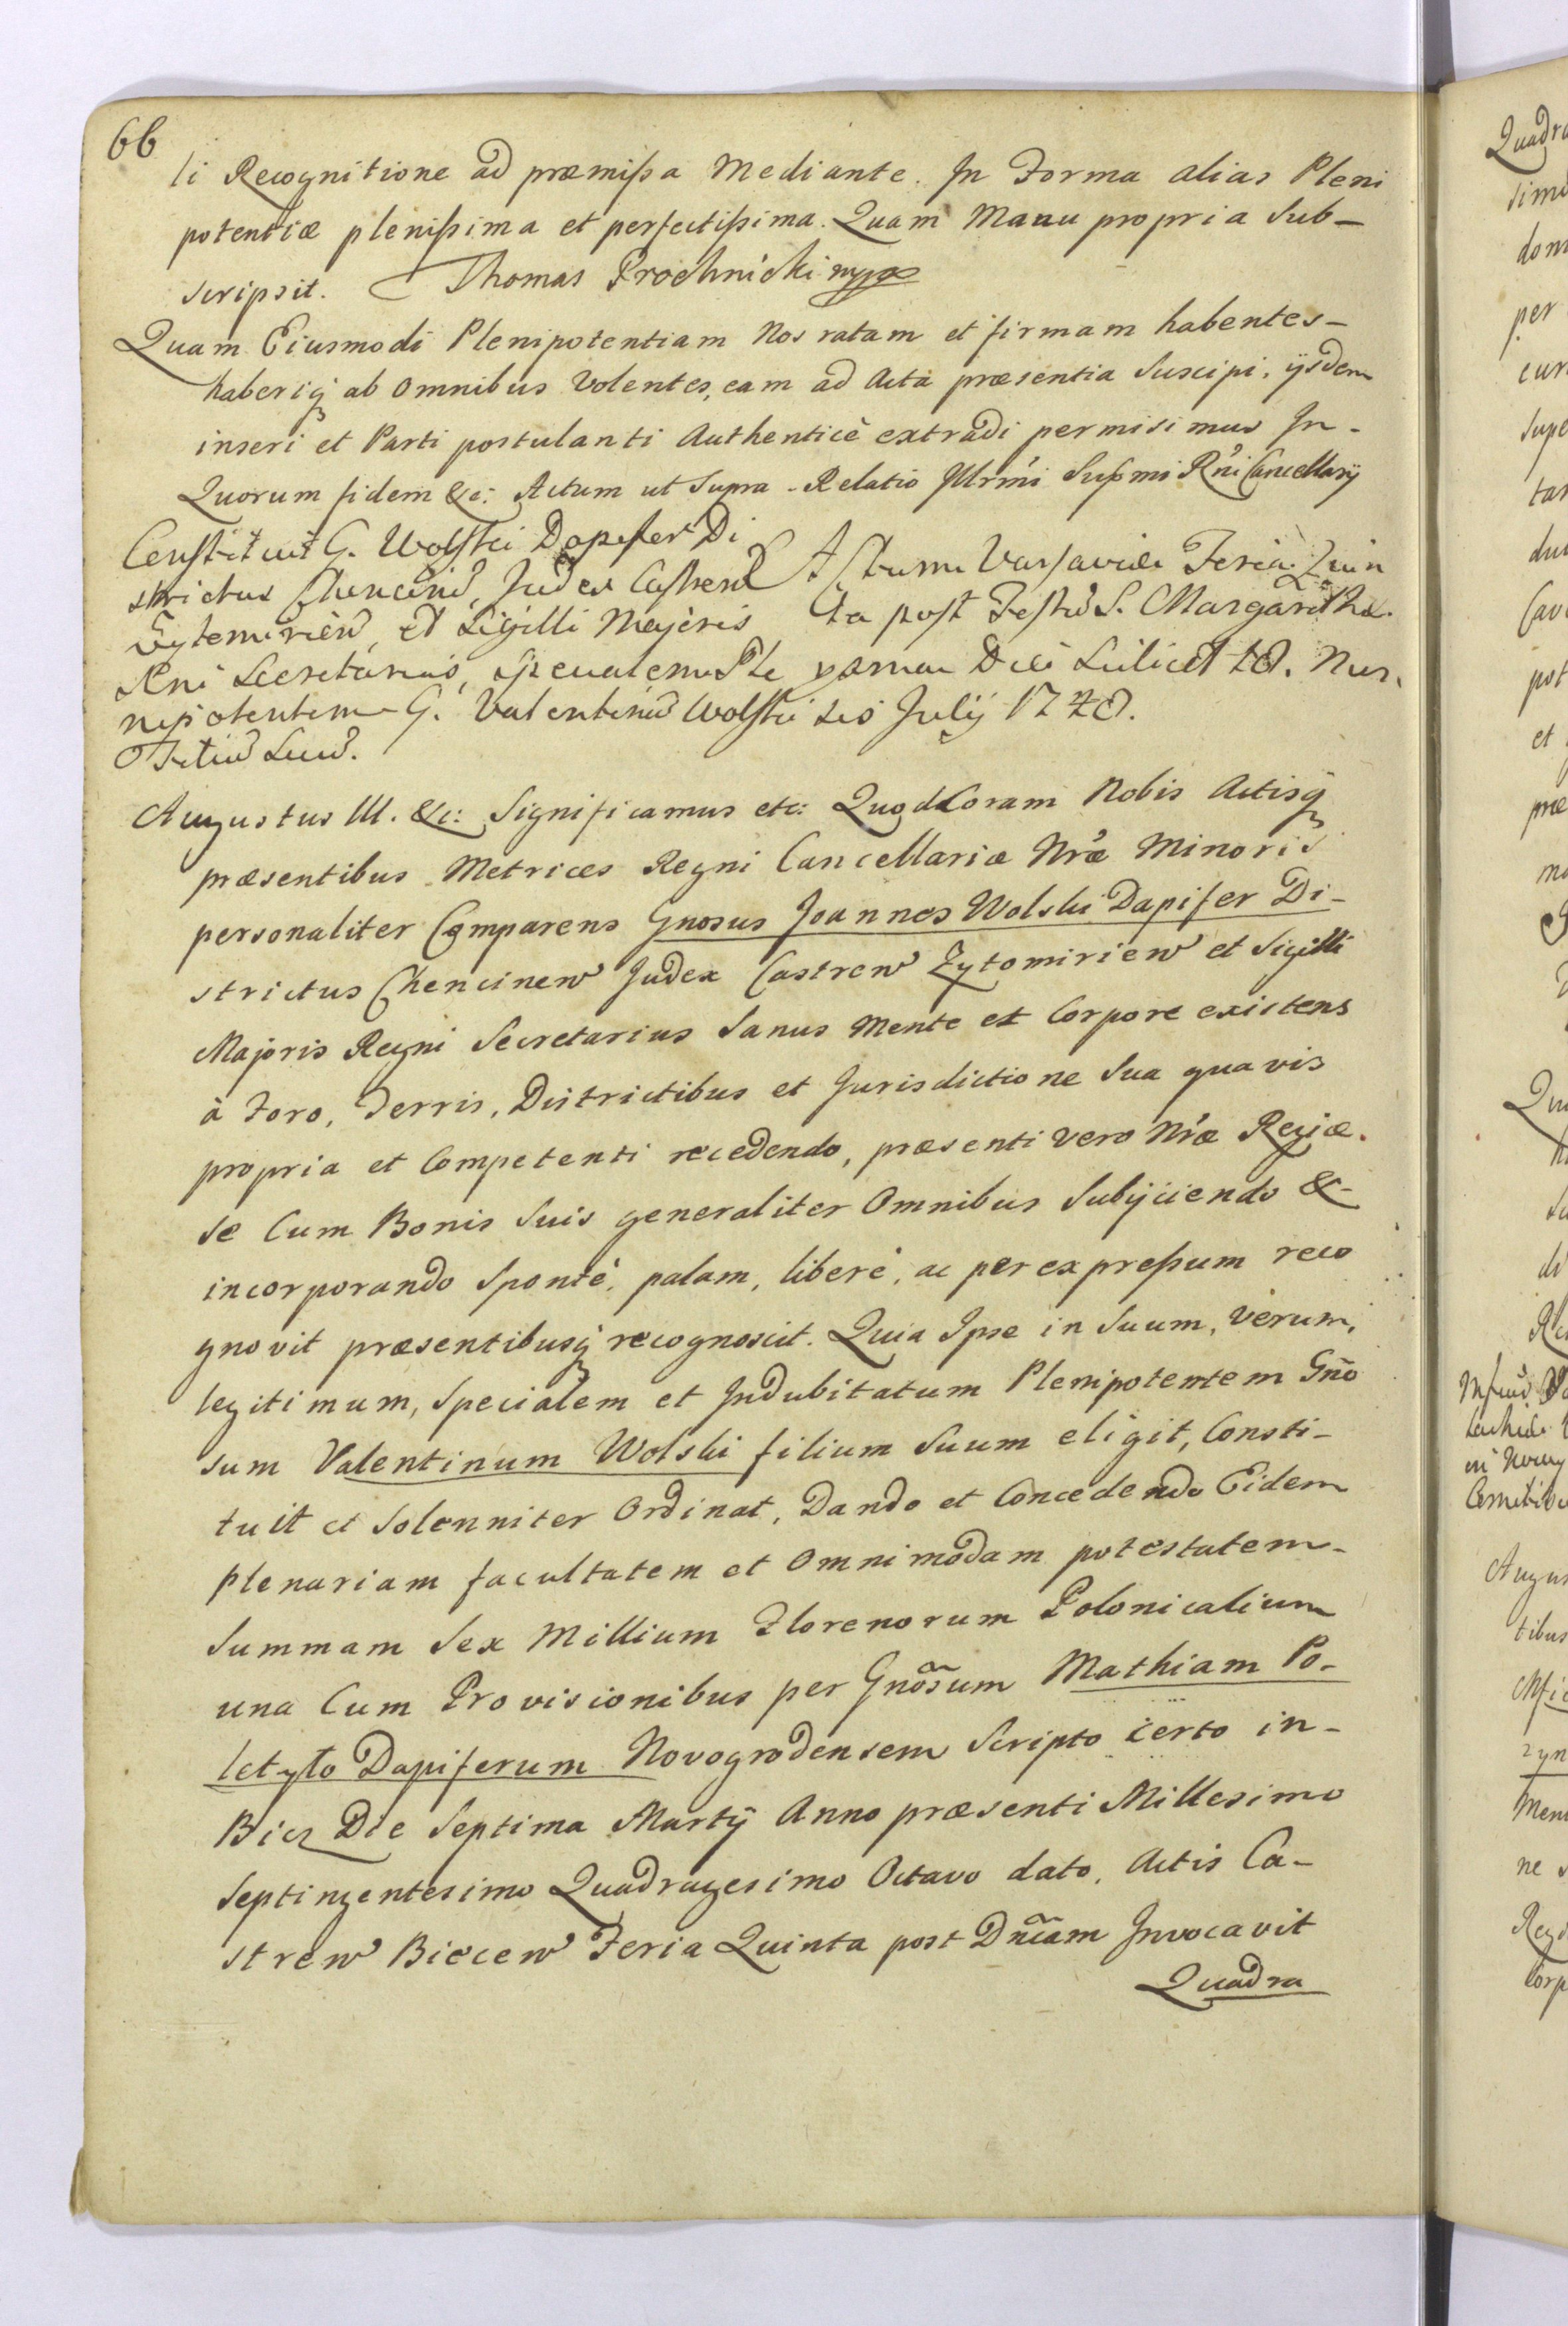 66
li Recognitione ad præmißa Mediante. In Forma alias Pleni
potentiæ plenißima et perfectißima. Quam Manu propria Sub-
scripsit. Thomas Prochnicki mpp
Quam Eiusmodi Plenipotentiam Nos ratam et firmam habentes-
haberiq ab Omnibus Volentes, eam ad Acta præsentia Suscipi, ijsdem
inseri et Parti postulanti Authenticè extradi permisimus In-
Quorum fidem &c: Actum ut Supra - Relatio Illr̃mi Supmi Rñi Cancellarij
Constituit G. Wolski Dapifer Di
strictus Chencinen, Judex Castren
Zytomirien, et Sigilli Majoris
Rni Secretarius, specialem Ple
nipotentem G. Valentinum Wolski
Filium Suum.
Actum Varsaviæ Feria Quin
ta post Festum S. Margarithæ
Die Scilicet 18. Men
sis July 1748.
Augustus III. &c: Significamus etc: Quod Coram Nobis Actisq
præsentibus Metrices Regni Cancellariæ Nræ Minoris
personaliter Comparens Gnosus Joannes Wolski Dapifer Di-
strictus Chencinen Judex Castren Zytomirien et Sigilli
Majoris Regni Secretarius Sanus Mente et Corpore existens
à Foro, Terris, Districtibus et Jurisdictione Sua quavis
propria et Competenti recedendo, præsenti vero Nræ Regiæ.
se Cum Bonis Suis generaliter Omnibus Subijciendo &
incorporando Sponté, palam, liberé, ac per expreßum reco
gnovit præsentibusq recognoscit. Quia Ipse in Suum, Verum,
legitimum, Specialem et Indubitatum Plenipotentem Gño
sum Valentinum Wolski filium Suum eligit, Consti-
tuit et Solenniter Ordinat, Dando et Concedendo Eidem
plenariam facultatem et Omnimodam potestatem-
Summam Sex Millium Florenorum Polonicalium
una Cum Provisionibus per Gnõsum Mathiam Po-
letyło Dapiferum Novogrodensem Scripto certo in-
Biez Die Septima Martij Anno præsenti Millesimo
Septingentesimo Quadragesimo Octavo dato, Actis Ca-
stren Biecen Feria Quinta post Dñcam Invocavit
Quadra